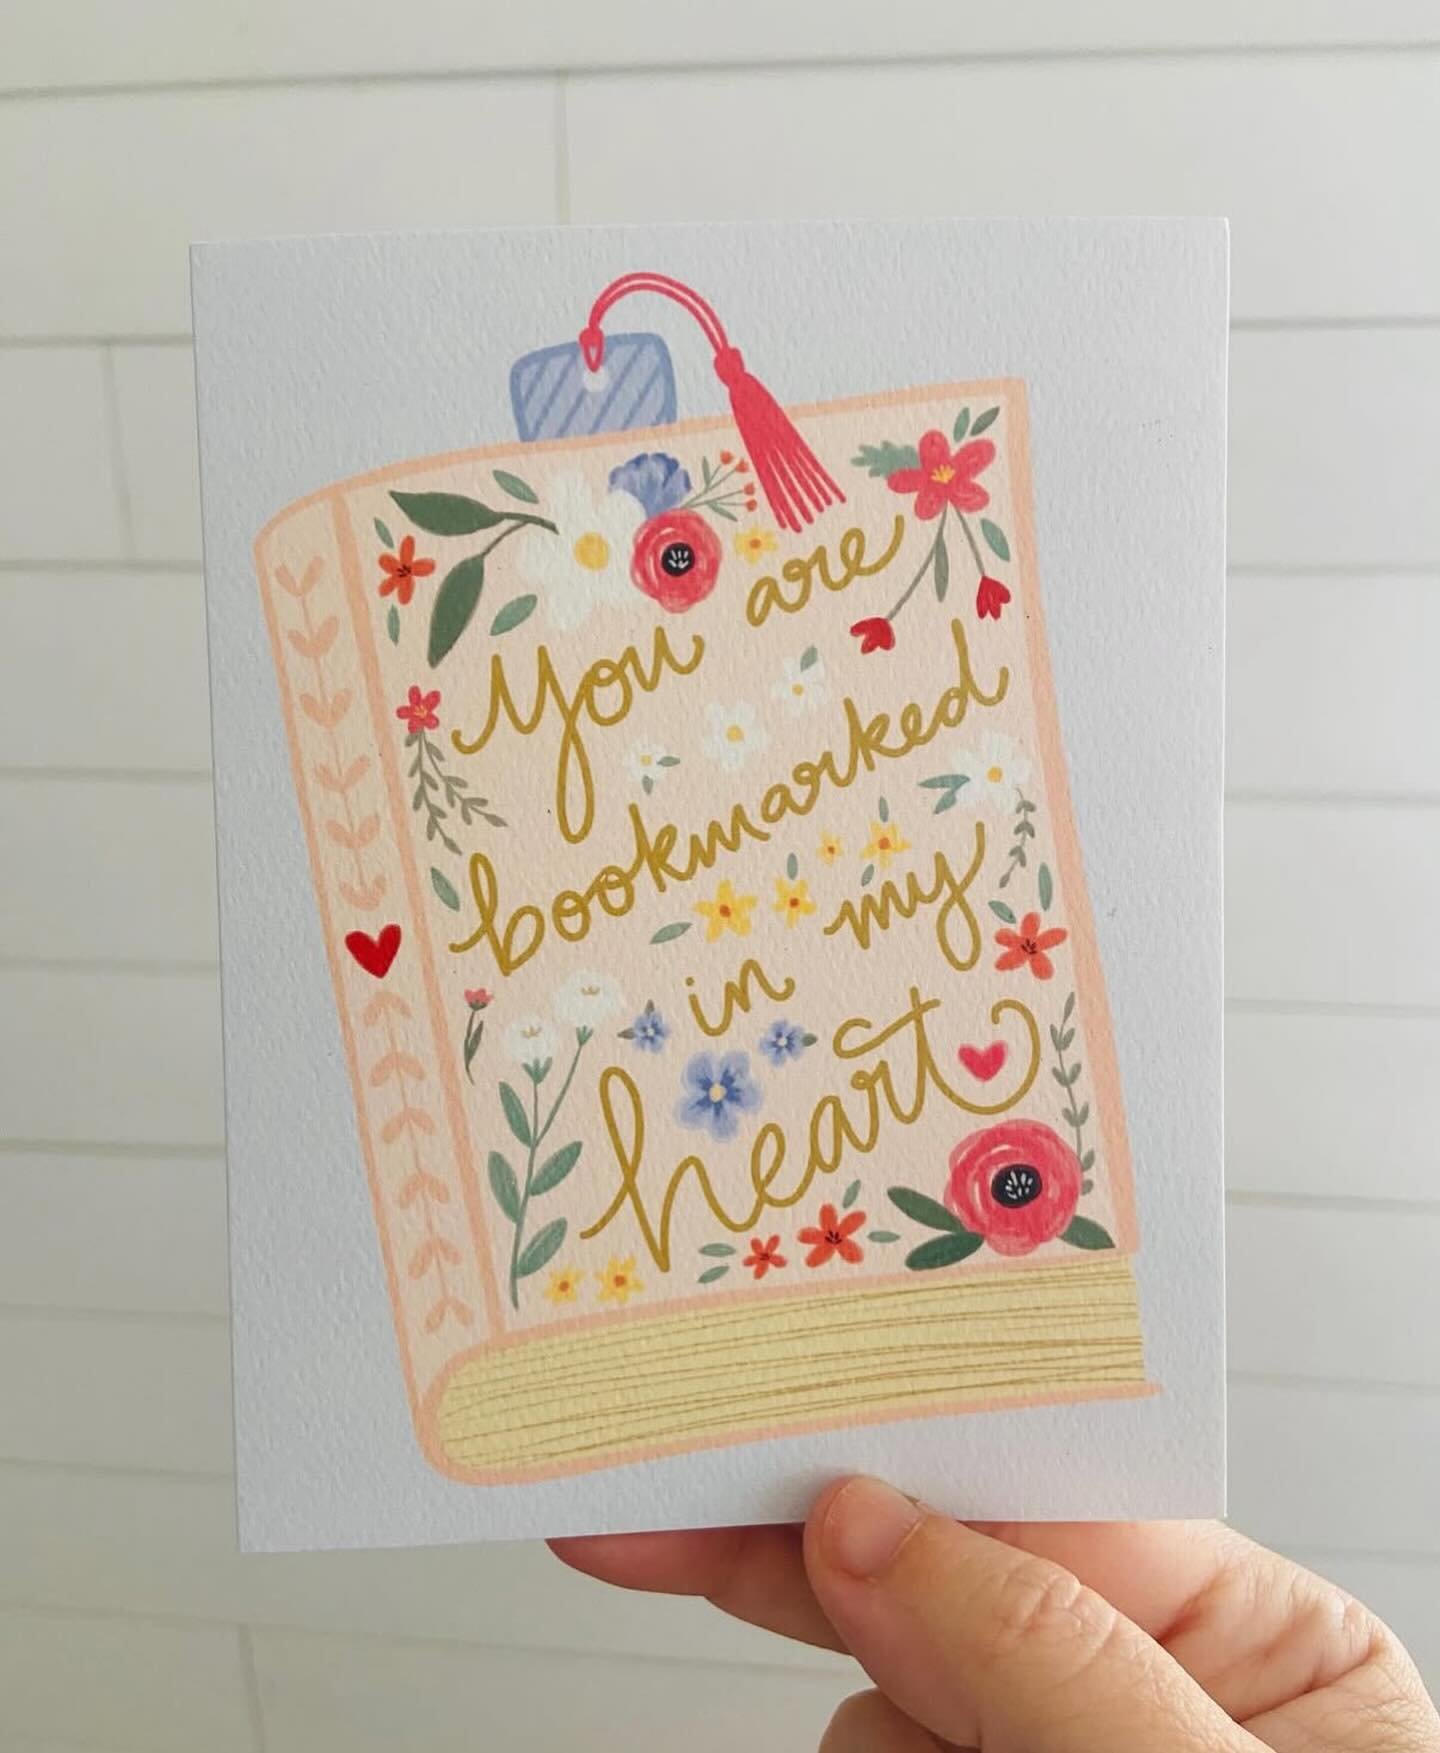 You are
bookmarked
in my
heart